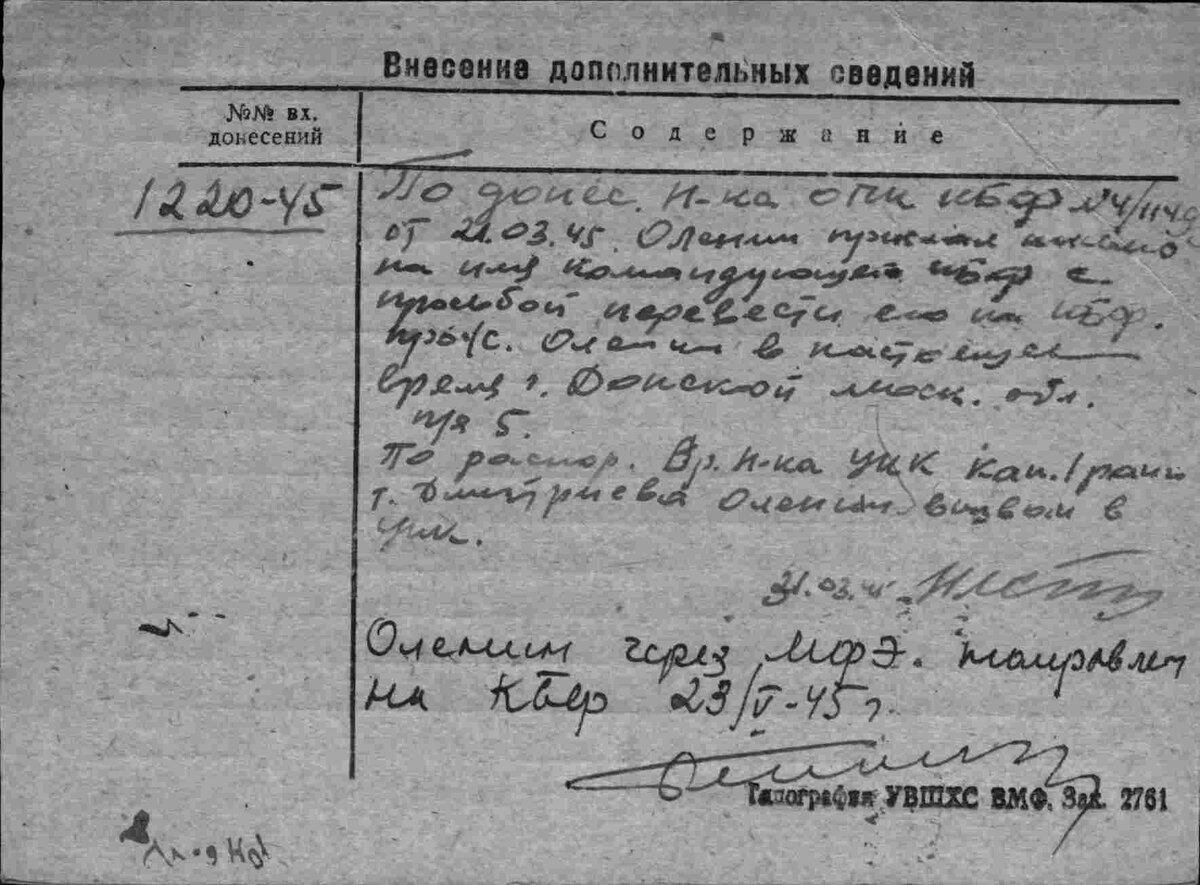 Внесение дополнительных сведений
№№ вх. донесений
Содержание
1220-45
По донес. Н-ка ОПК КБФ №4/
от 21.03.45. Оленин прислал письмо
на имя командующего КБФ с
просьбой перевести его на КБФ.
Оленин в настоящее
время г. Донской моск. обл.
п/я 5.
По распор. Вр. Н-ка УПК кап. 1 ранг
т. Дмитриева Оленин вызван в
УПК.
31.03.45
Оленин через МФЭ. направлен
на КБФ 23/V-45 г.
Типография УВШХС ВМФ. Зак. 2761